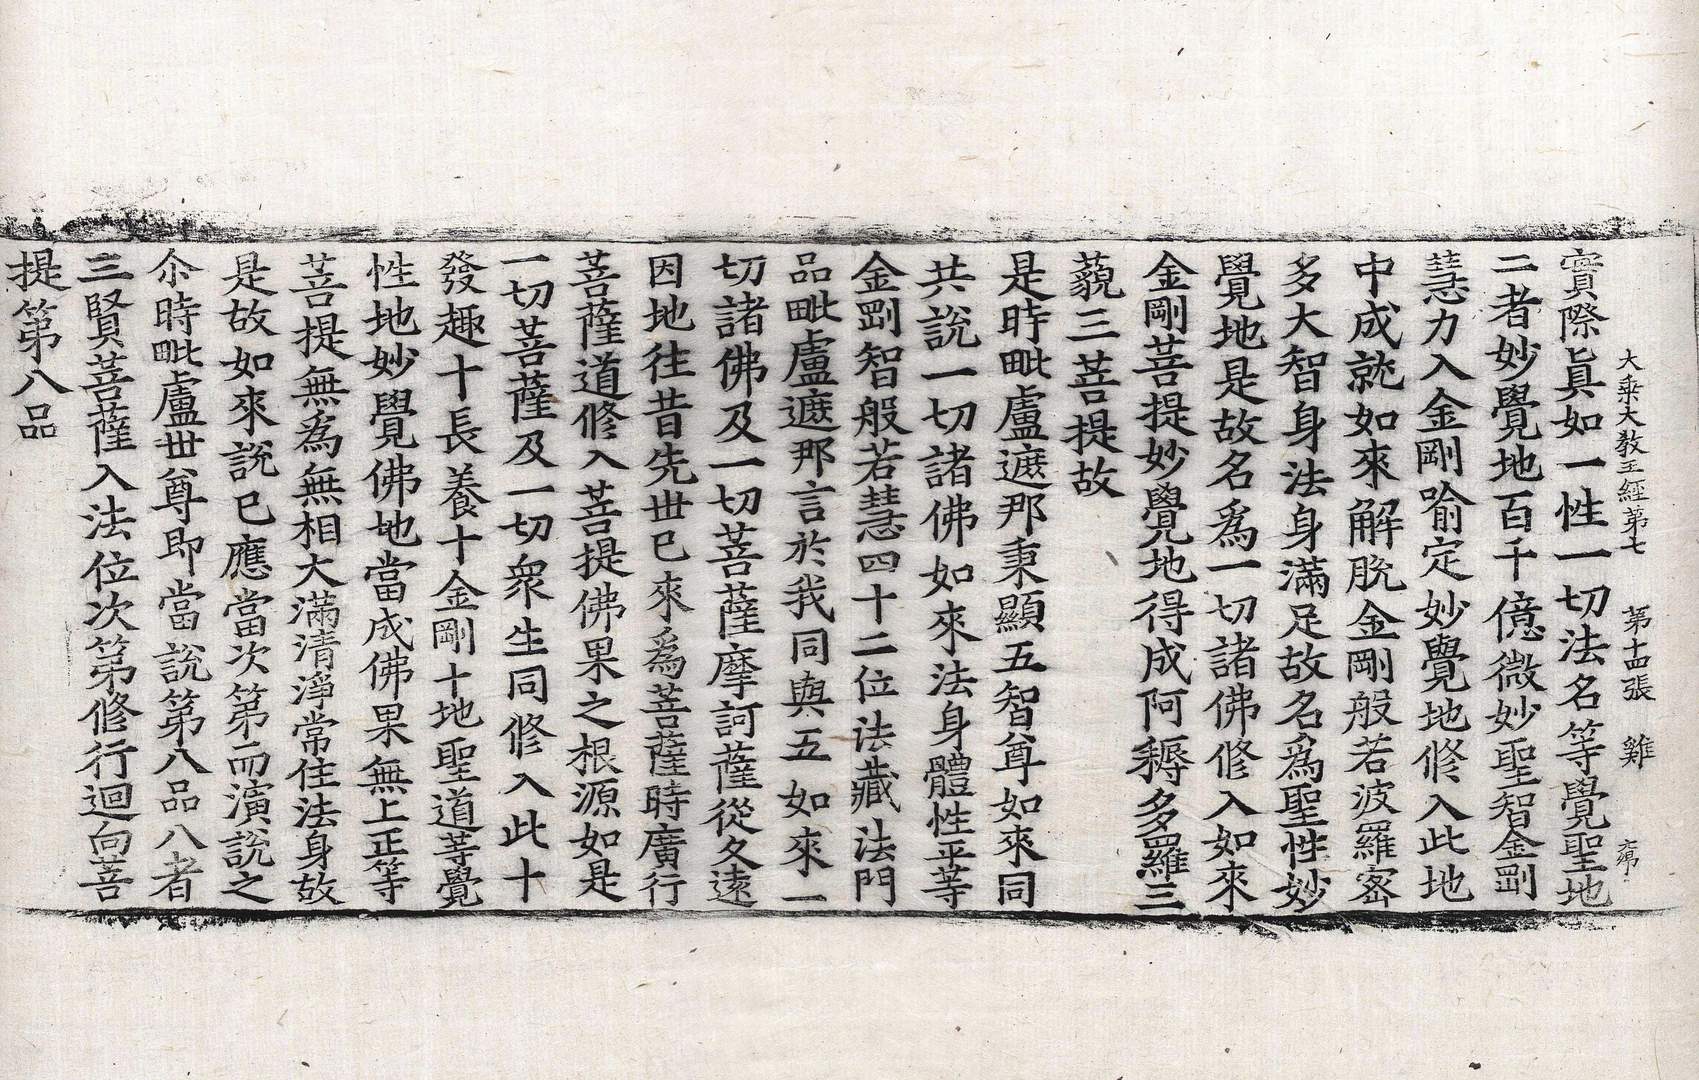 大乘大教王經第七 第十四張 雞
實際眞如一性一切法名等覺聖地
二者妙覺地百千億微妙聖智金剛
慧力入金剛喻定妙覺地修入此地
中成就如來解脫金剛般若波羅蜜
多大智身法身滿足故名為聖性妙
覺地是故名爲一切諸佛修入如來
金剛菩提妙覺地得成阿耨多羅三
藐三菩提故
是時毗盧遮那秉顯五智尊如來同
共說一切諸佛如來法身體性平等
金剛智般若慧四十二位法藏法門
品毗盧遮那言於我同與五如來一
切諸佛及一切菩薩摩訶薩從久遠
因地往昔先世已來爲菩薩時廣行
菩薩道修入菩提佛果之根源如是
一切菩薩及一切衆生同修入此十
發趣十長養十金剛十地聖道等覺
性地妙覺佛地當成佛果無上正等
菩提無爲無相大滿清淨常住法身故
是故如來說已應當次第而演說之
尒時毗盧世尊即當說第八品八者
三賢菩薩入法位次第修行迴向菩
提第八品